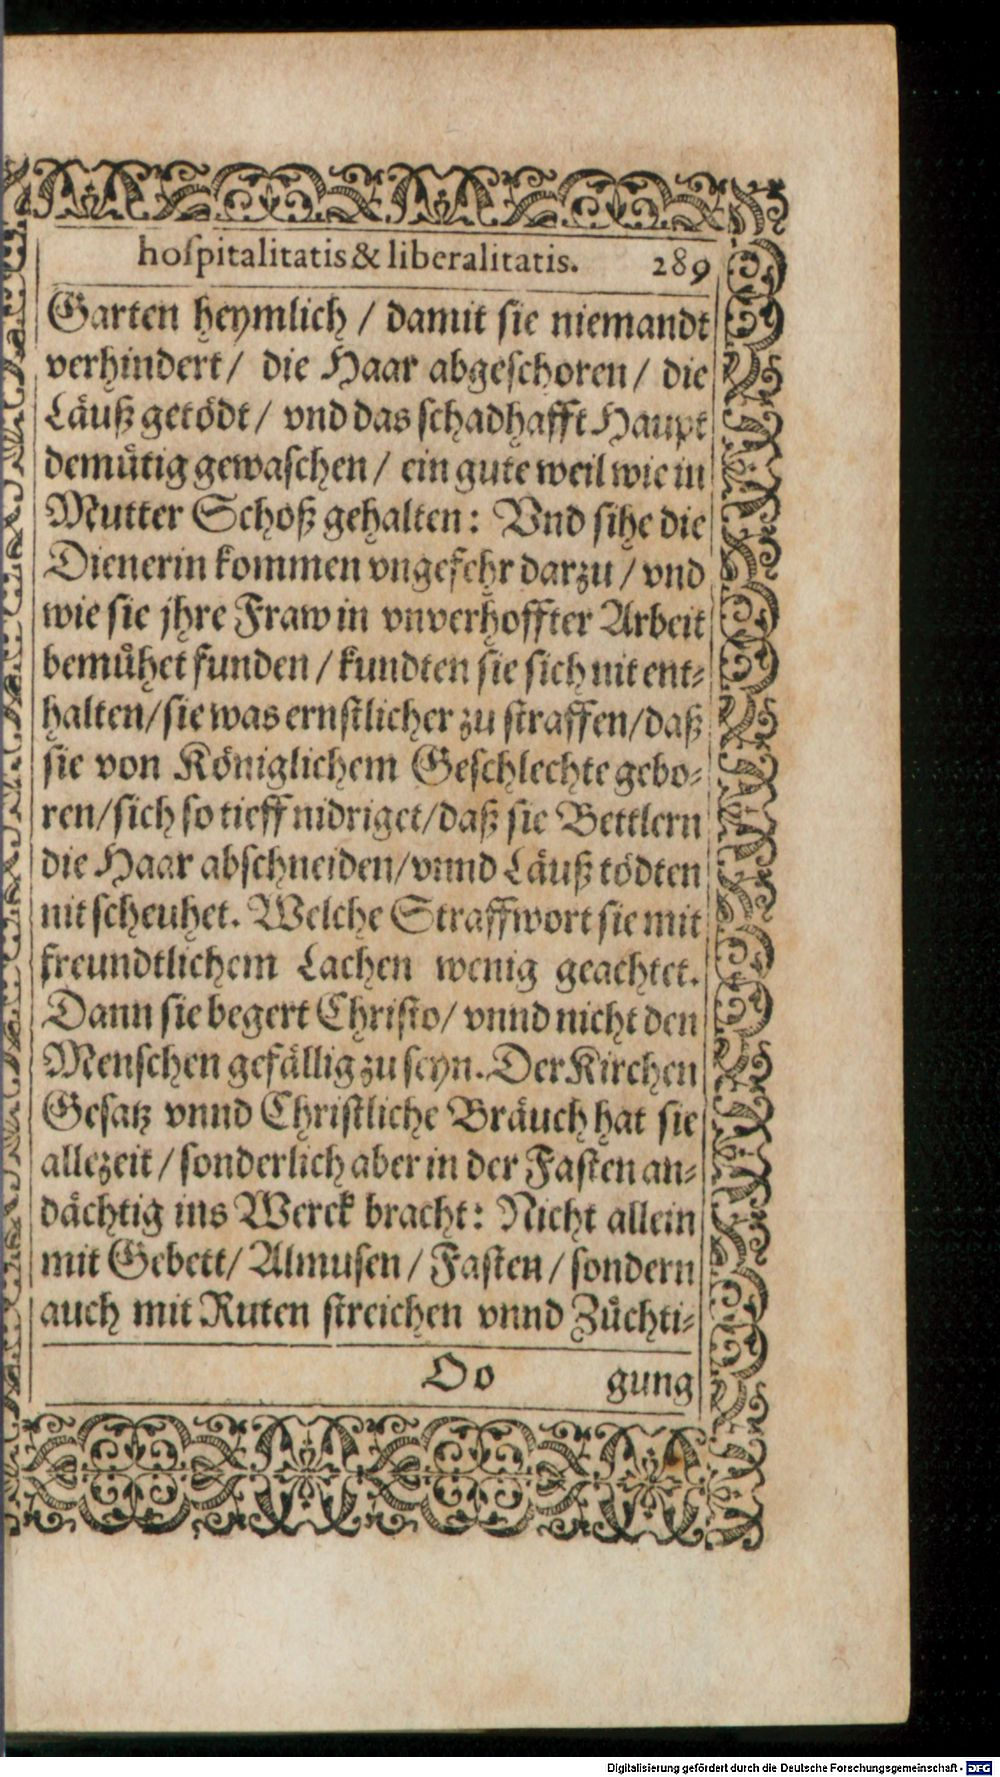 hoſpitalitatis & liberalitatis. 289
Garten heymlich / damit ſie niemandt
verhindert / die Haar abgeſchoren / die
Läuß getödt / vnd das ſchadhafft Haupt
demütig gewaſchen / ein gute weil wie in
Mutter Schoß gehalten: Vnd ſihe die
Dienerin kommen vngefehr darzu / vnd
wie ſie jhre Fraw in vnverhoffter Arbeit
bemühet funden / kundten ſie ſich nit ent⸗
halten/ſie was ernſtlicher zu ſtraffen/daß
ſie von Königlichem Geſchlechte gebo⸗
ren/ſich ſo tieff nidriget/daß ſie Bettlern
die Haar abſchneiden/vnnd Läuß tödten
nit ſcheuhet. Welche Straffwort ſie mit
freundtlichem Lachen wenig geachtet.
Dann ſie begert Chriſto/ vnnd nicht den
Menſchen gefällig zu ſeyn. Der Kirchen
Geſatz vnnd Chriſtliche Bräuch hat ſie
allezeit / ſonderlich aber in der Faſten an⸗
dächtig ins Werck bracht: Nicht allein
mit Gebett/ Almuſen / Faſten / ſondern
auch mit Ruten ſtreichen vnnd Züchti⸗
Oo gung
Digitalisierung gefördert durch die Deutsche Forschungsgemeinschaft - DFG